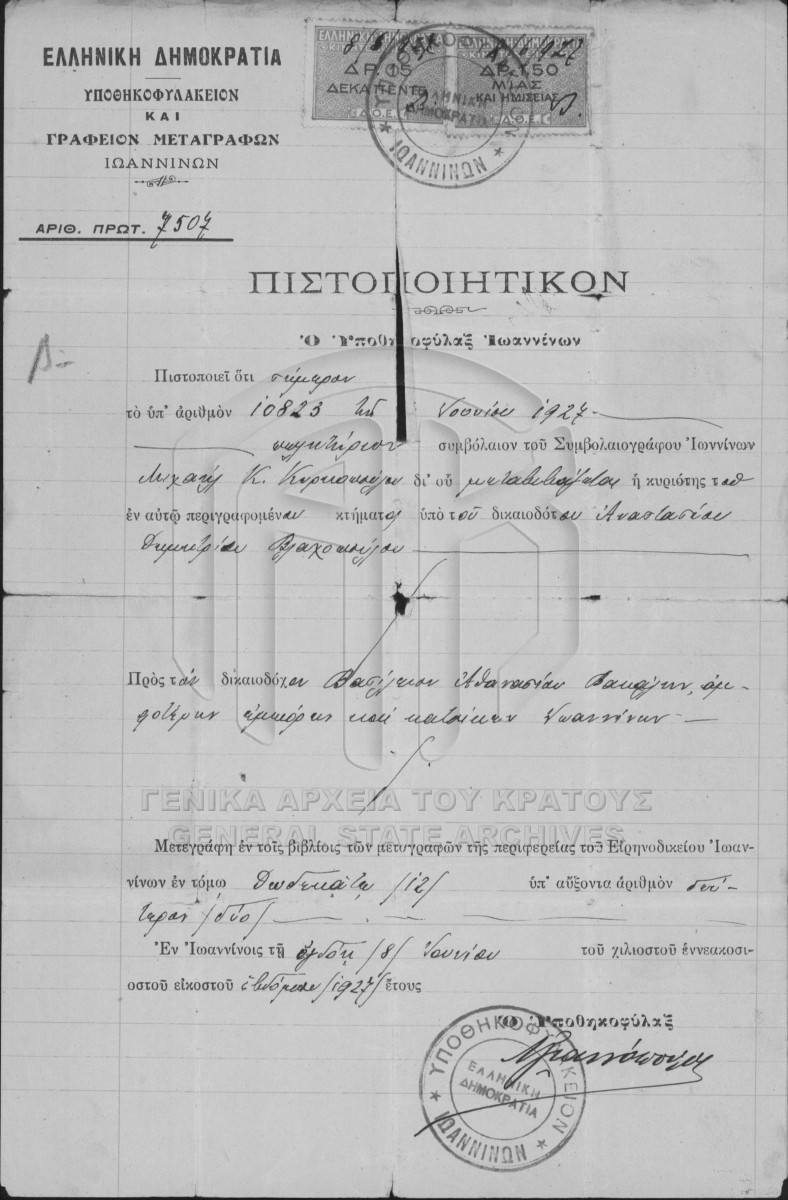 ΕΛΛΗΝΙΚΗ ΔΗΜΟΚΡΑΤΙΑ
ΥΠΟΘΗΚΟΦΥΛΑΚΕΙΟΝ
ΚΑΙ
ΓΡΑΦΕΙΟΝ ΜΕΤΑΓΡΑΦΩΝ
ΙΩΑΝΝΙΝΩΝ
ΑΡΙΘ. ΠΡΩΤ. 7507
ΔΡ. 15
ΔΕΚΑΠΕΝΤΕ
ΔΡ. 1.50
ΜΙΑΣ
ΚΑΙ ΗΜΙΣΕΙΑΣ
ΕΛΛΗΝΙΚΗ
ΔΗΜΟΚΡΑΤΙΑ
ΙΩΑΝΝΙΝΩΝ
ΠΙΣΤΟΠΟΙΗΤΙΚΟΝ
Ὁ Ὑποθηκοφύλαξ Ἰωαννίνων
Πιστοποιεῖ ὅτι σήμερον
τὸ ὑπ' ἀριθμὸν 10823 Ἰουνίου 1927
πωλητήριον συμβόλαιον τοῦ Συμβολαιογράφου Ἰωννίνων
Μιχαὴλ Κ. δι' οὗ μεταβιβάζεται ἡ κυριότης τοῦ
ἐν αὐτῷ περιγραφομένου κτήματος ὑπὸ τοῦ δικαιοδότου Ἀναστασίου
Δημητρίου Βλαχοπούλου
Πρὸς τὸν δικαιοδόχον Βασίλειον Ἀθανασίου ἀμ-
φοτέρων ἐμπόρων καὶ κατοίκων Ἰωαννίνων
ΓΕΝΙΚΑ ΑΡΧΕΙΑ ΤΟΥ ΚΡΑΤΟΥΣ
GENERAL STATE ARCHIVES
Μετεγράφη ἐν τοῖς βιβλίοις τῶν μετογραφῶν τῆς περιφερείας τοῦ Εἰρηνοδικείου Ἰωαν-
νίνων ἐν τόμῳ Δωδεκάτῳ /12/ ὑπ' αὔξοντα ἀριθμὸν δεύ-
τερον /δύο/
Ἐν Ἰωαννίνοις τῇ ὀγδόῃ /8/ Ἰουνίου τοῦ χιλιοστοῦ ἐννεακοσι-
οστοῦ εἰκοστοῦ ἑβδόμου /1927/ ἔτους
Ὁ Ὑποθηκοφύλαξ
ΥΠΟΘΗΚΟΦΥΛΑΚΕΙΟΝ
ΕΛΛΗΝΙΚΗ
ΔΗΜΟΚΡΑΤΙΑ
ΙΩΑΝΝΙΝΩΝ